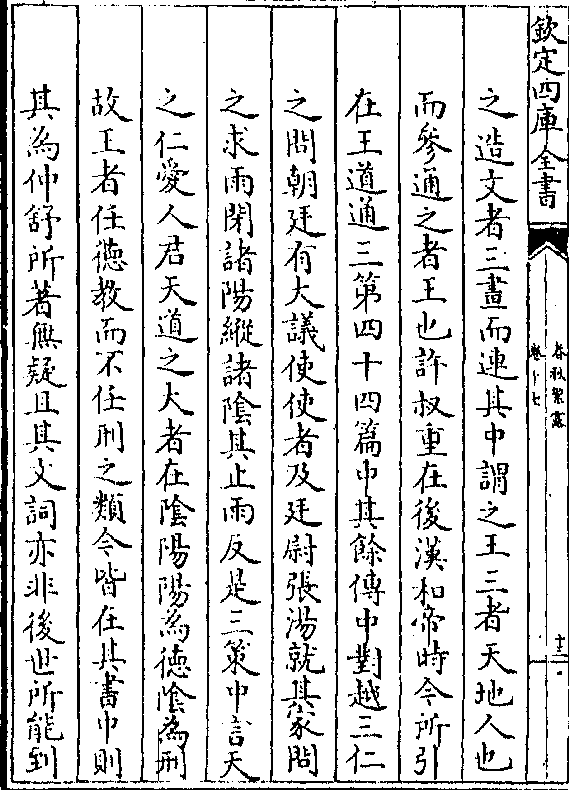 欽定四庫全書
春秋繁露
卷十七
十三
之造文者三畫而連其中謂之王三者天地人也
而參通之者王也許叔重在後漢和帝時今所引
在王道通三第四十四篇中其餘傳中對越三仁
之問朝廷有大議使使者及廷尉張湯就其家問
之求雨閉諸陽縱諸陰其止雨反是三策中言天
之仁愛人君天道之大者在陰陽陽為德陰為刑
故王者任德教而不任刑之類今皆在其書中則
其為仲舒所著無疑且其文詞亦非後世所能到